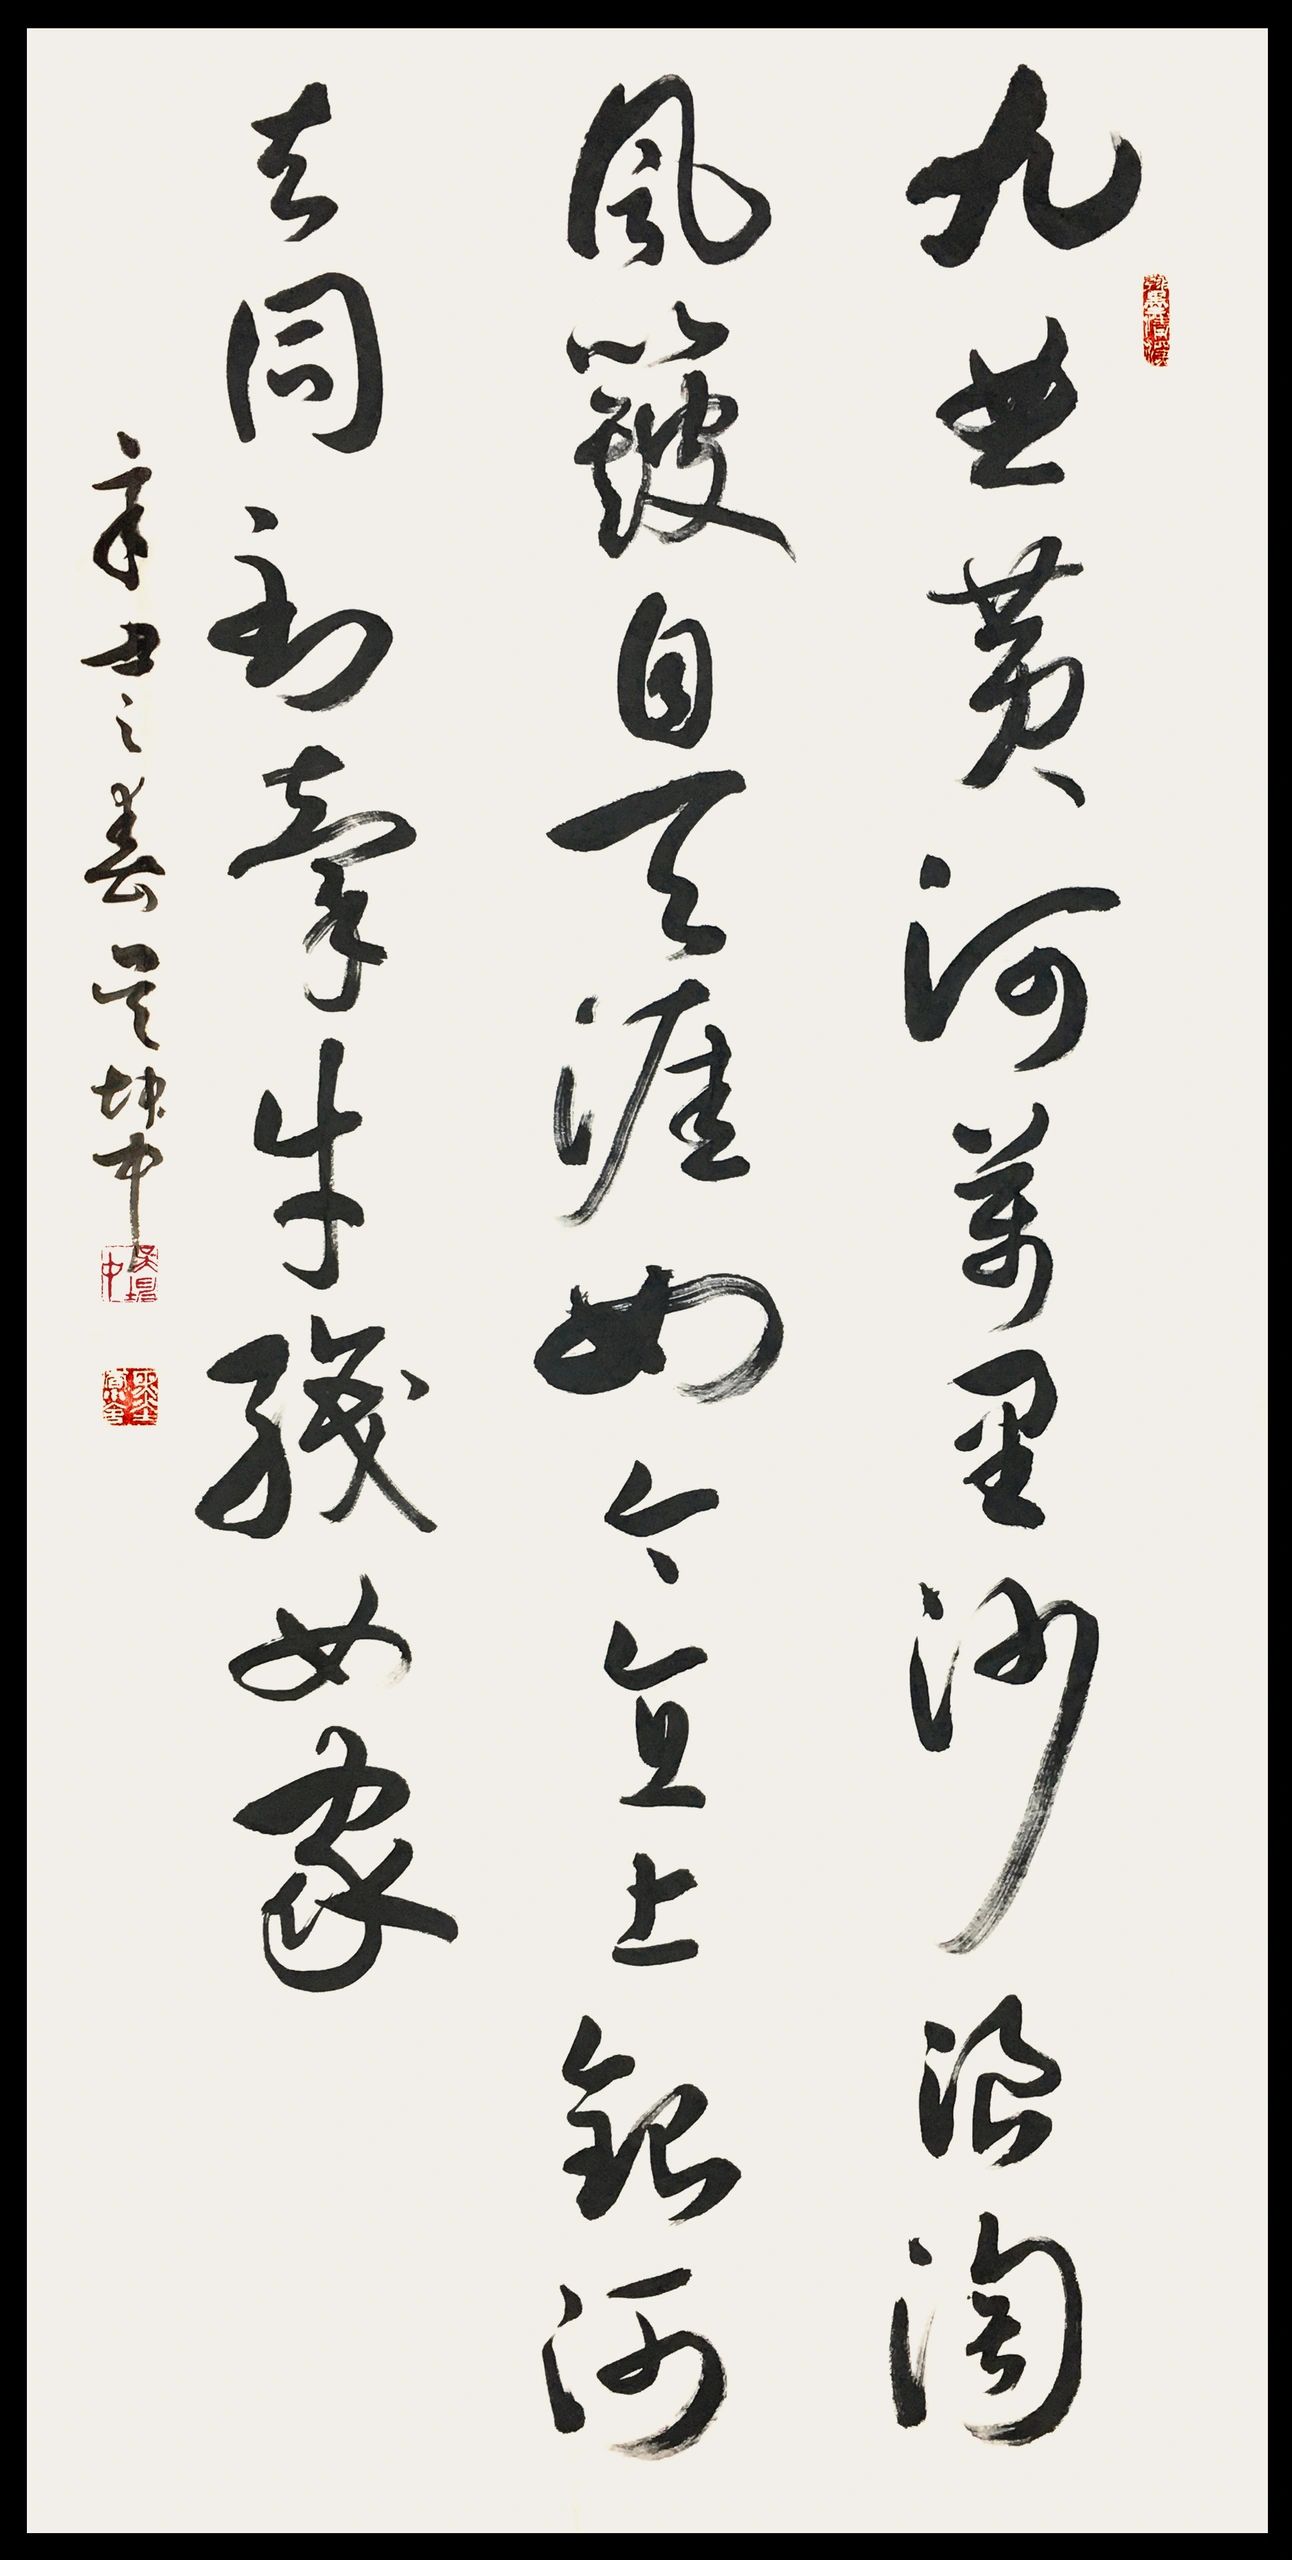 九曲黄河萬里沙浪淘
風簸自天涯如今直上銀河
去同到牽牛織女家
辛丑之春吴坤中